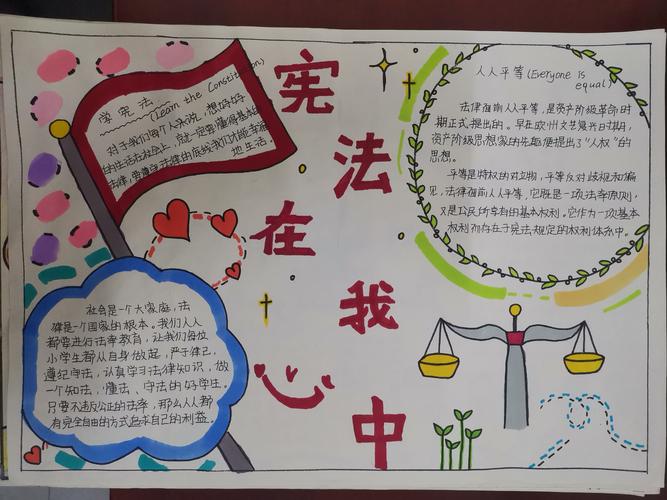 宪法在我心中
学宪法
(Learn the Constitution)
对于我们每个人来说，想好好
的生活在社会上，就一定要懂得基本的
法律，要遵守法律的底线我们才能幸福
地生活。
社会是一个大家庭，法
律是一个国家的根本。我们人人
都要进行法律教育，让我们每位
小学生都从自身做起，严于律己，
遵纪守法，认真学习法律知识，做
一个知法，懂法、守法的好学生。
只要不违反公正的法律，那么人人都
有完全自由的方式追求自己的利益。
人人平等(Everyone is
equal)
法律面前人人平等，是资产阶级革命时
期正式提出的。早在欧州文艺复兴时期，
资产阶级思想家的先驱便提出了"人权"的
思想。
平等是特权的对立物，平等反对歧视和偏
见，法律面前人人平等，它既是一项法律原则，
又是公民所享有的基本权利。它作为一项基本
权利而存在于宪法规定的权利体系中。